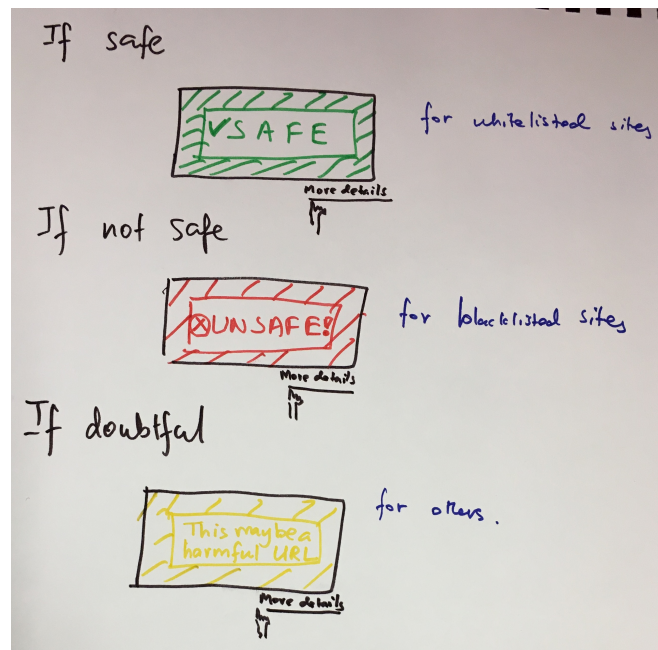 If safe
✓SAFE
for whitelisted sites
More details
If not safe
ⓧUNSAFE!
for blacklisted sites
More details
If doubtful
This may be a
harmful URL
for others.
More details